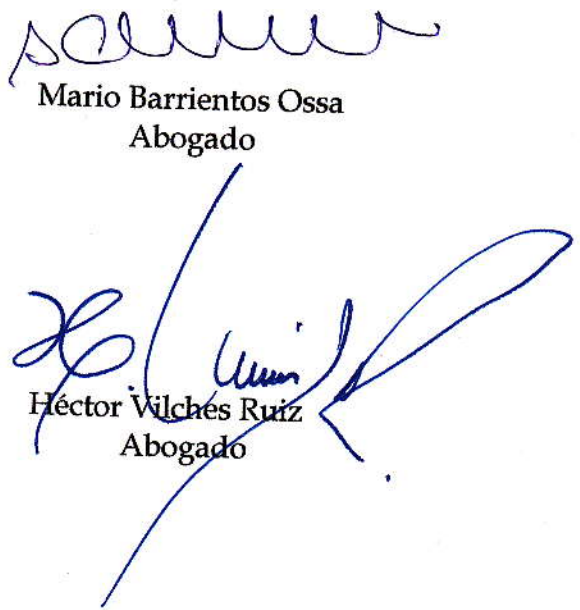 Mario Barrientos Ossa
Abogado
Héctor Vilches Ruiz
Abogado